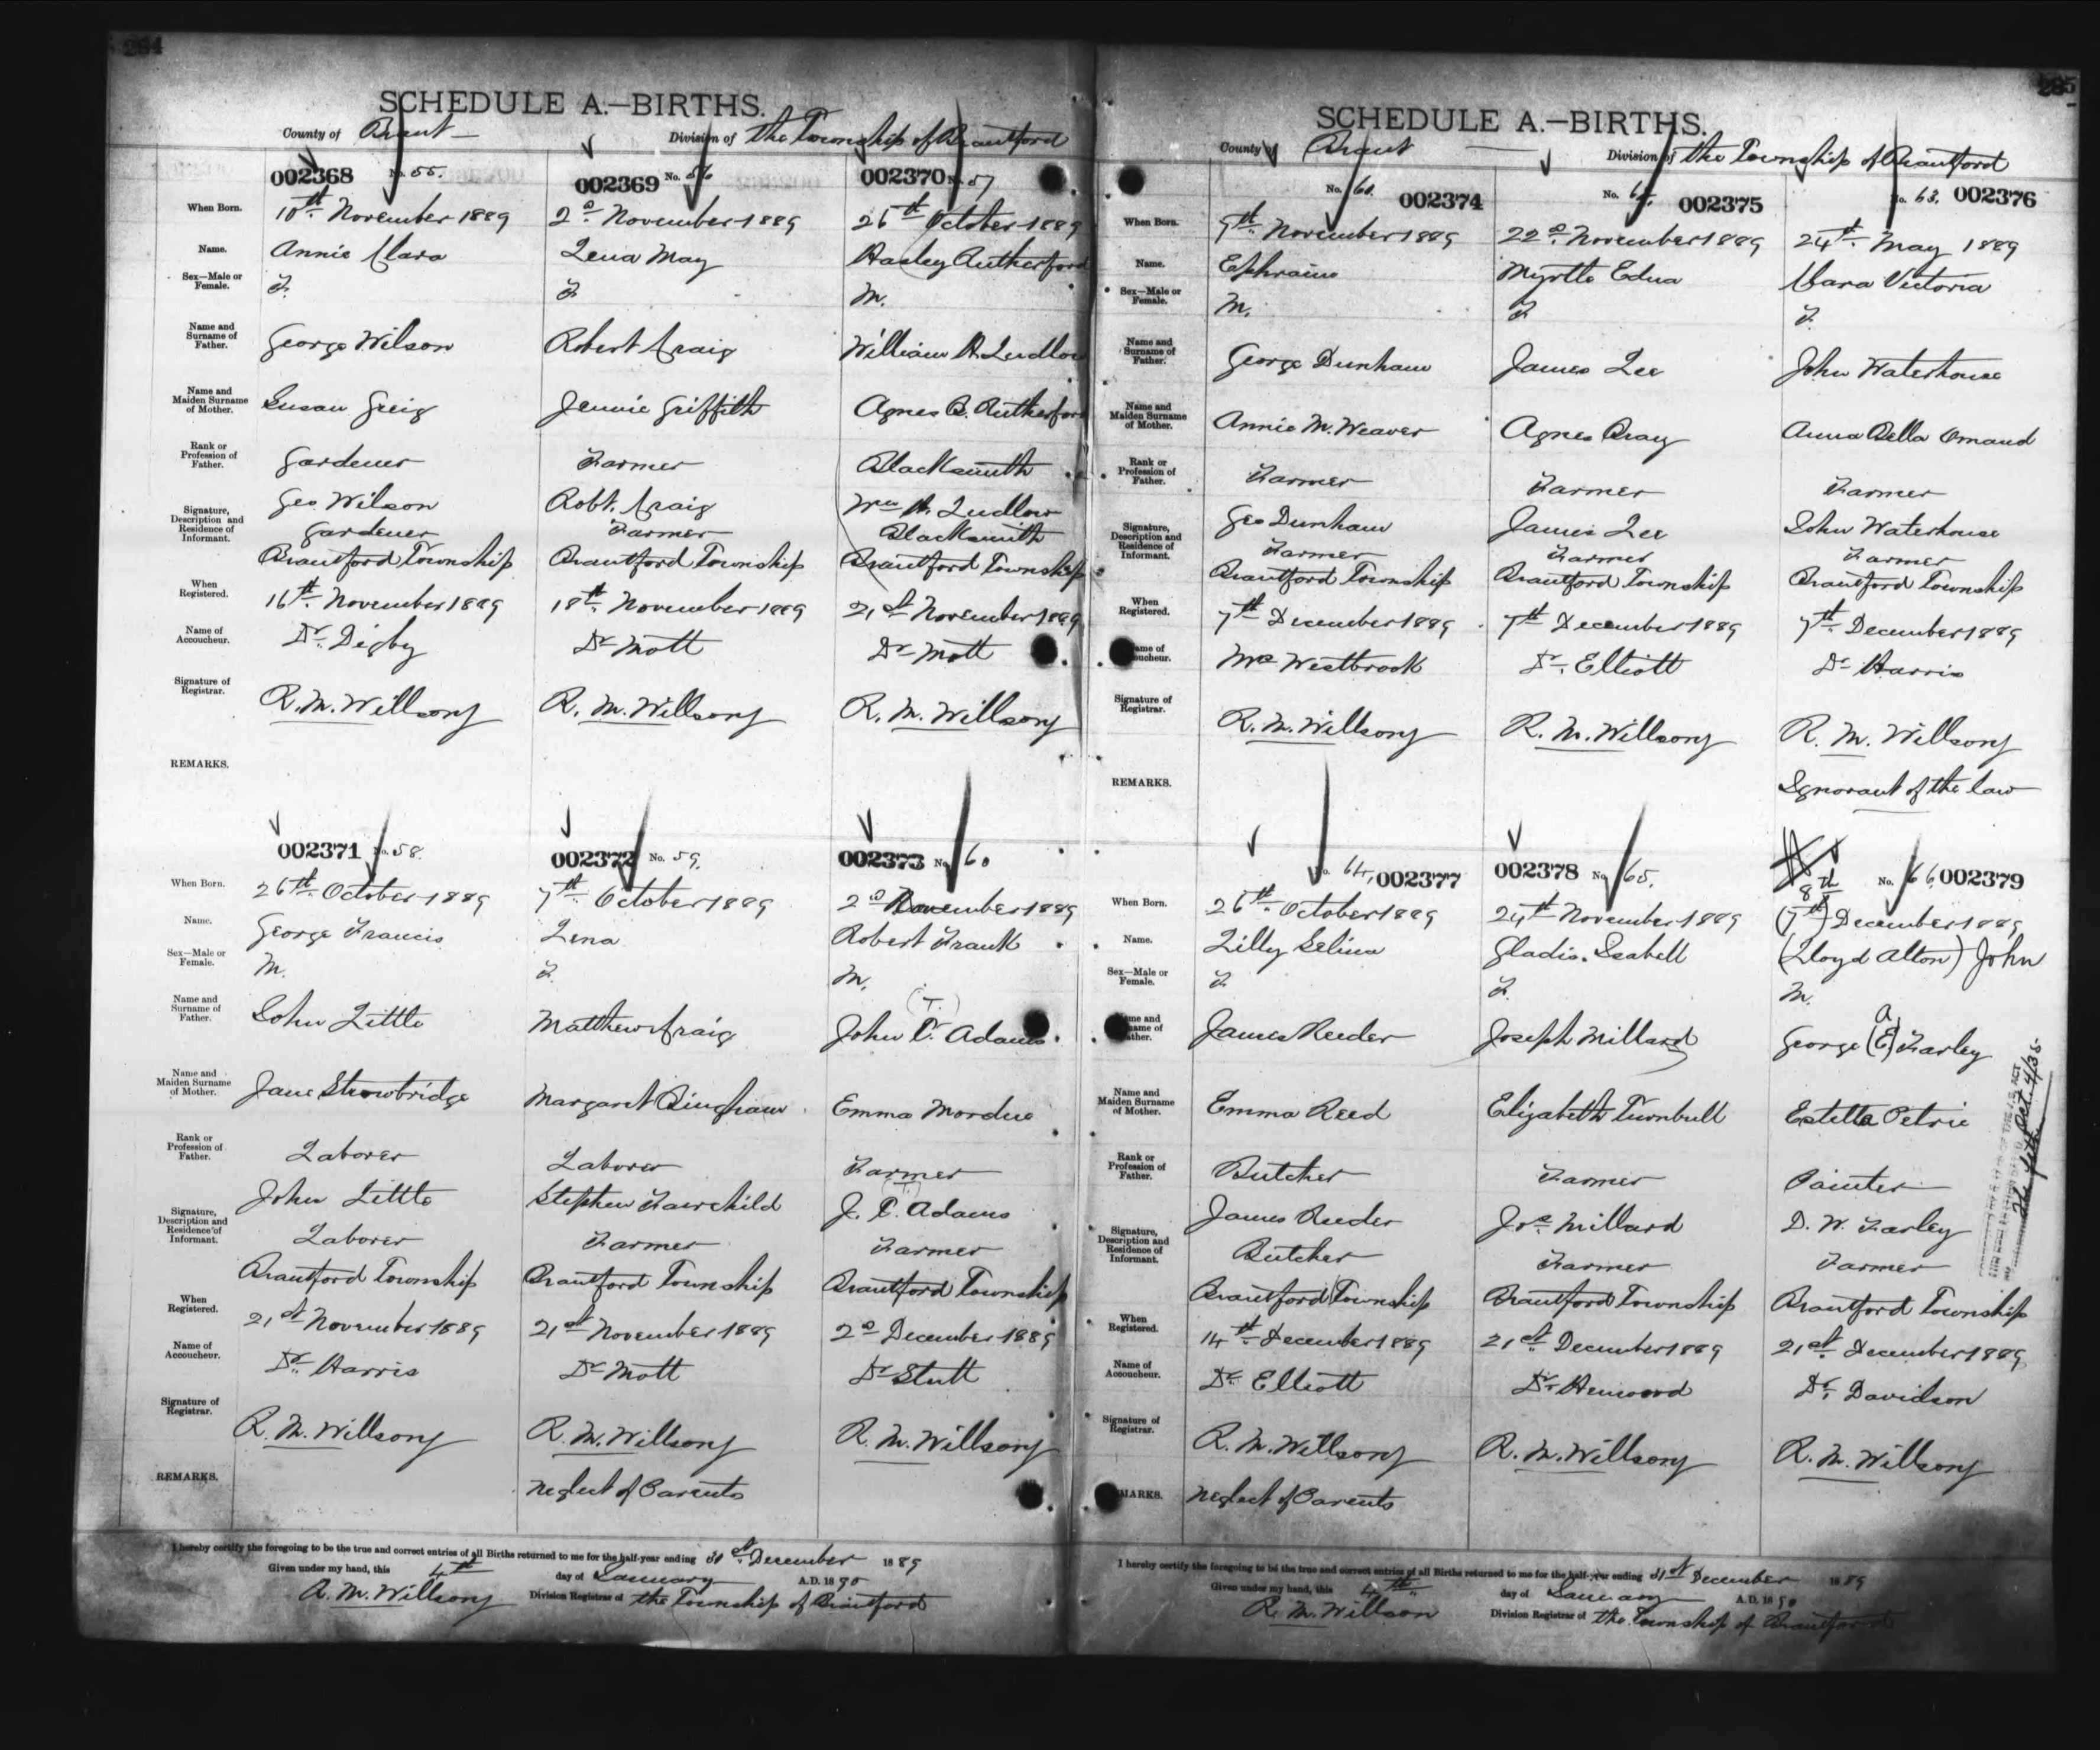 284
SCHEDULE A.—BIRTHS.
County of Brant Division of the Township of Brantford
002368 No. 55. 002369 No. 56 002370 No. 57
When Born. 10th November 1889 2d November 1889 26th October 1889
Name. Annie Clara Lena May Harley Rutherford
Sex—Male or Female. F. F M.
Name and Surname of Father. George Wilson Robert Craig William A. Ludlow
Name and Maiden Surname of Mother. Susan Greig Jennie Griffith Agnes B. Rutherford
Rank or Profession of Father. Gardener Farmer Blacksmith
Signature, Description and Residence of Informant. Geo Wilson Robt. Craig Wm A. Ludlow
Gardener Farmer Blacksmith
Brantford Township Brantford Township Brantford Township
When Registered. 16th November 1889 18th November 1889 21st November 1889
Name of Accoucheur. Dr. Digby Dr Mott Dr Mott
Signature of Registrar. R. M. Willson R. M. Willson R. M. Willson
REMARKS.
002371 No. 58. 002372 No. 59. 002373 No. 60
When Born. 26th October 1889 7th October 1889 2d November 1889
Name. George Francis Lena Robert Frank
Sex—Male or Female. M. F. M.
(T.)
Name and Surname of Father. John Little Matthew Craig John C. Adams
Name and Maiden Surname of Mother. Jane Strowbridge Margaret Bingham Emma Mordue
Rank or Profession of Father. Laborer Laborer Farmer
(T.)
Signature, Description and Residence of Informant. John Little Stephen Fairchild J. C. Adams
Laborer Farmer Farmer
Brantford Township Brantford Township Brantford Township
When Registered. 21st November 1889 21st November 1889 2d December 1889
Name of Accoucheur. Dr. Harris Dr Mott Dr Stutt
Signature of Registrar. R. M. Willson R. M. Willson R. M. Willson
REMARKS. Neglect of Parents
I hereby certify the foregoing to be the true and correct entries of all Births returned to me for the half-year ending 31st December 1889
Given under my hand, this 4th day of January A.D. 1890
R. M. Willson Division Registrar of the Township of Brantford
285
SCHEDULE A.—BIRTHS.
County of Brant Division of the Township of Brantford
No. 002374 No. 002375 No. 63. 002376
When Born. 9th November 1889 22d November 1889 24th May 1889
Name. Ephraim Myrtle Edna Clara Victoria
Sex—Male or Female. M. F F.
Name and Surname of Father. George Dunham James Lee John Waterhouse
Name and Maiden Surname of Mother. Annie M. Weaver Agnes Bray Anna Bella Omand
Rank or Profession of Father. Farmer Farmer Farmer
Signature, Description and Residence of Informant. Geo Dunham James Lee John Waterhouse
Farmer Farmer Farmer
Brantford Township Brantford Township Brantford Township
When Registered. 7th December 1889 7th December 1889 7th December 1889
Name of Accoucheur. Mrs Westbrook Dr. Elliott Dr Harris
Signature of Registrar. R. M. Willson R. M. Willson R. M. Willson
REMARKS. Ignorant of the law
No. 64, 002377 002378 No. 65. No. 66, 002379
8th
When Born. 26th October 1889 24th November 1889 (7th) December 1889
Name. Lilly Selina Gladis. Isabell (Lloyd Alton) John
Sex—Male or Female. F F. M.
a
Name and Surname of Father. James Reeder Joseph Millard George (E) Farley
Name and Maiden Surname of Mother. Emma Reed Elizabeth Turnbull Estella Petrie
Rank or Profession of Father. Butcher Farmer Painter
Signature, Description and Residence of Informant. James Reeder Jos. Millard D. W. Farley
Butcher Farmer Farmer
Brantford Township Brantford Township Brantford Township
When Registered. 14th December 1889 21st December 1889 21st December 1889
Name of Accoucheur. Dr. Elliott Dr. Henwood Dr. Davidson
Signature of Registrar. R. M. Willson R. M. Willson R. M. Willson
REMARKS. Neglect of Parents
I hereby certify the foregoing to be the true and correct entries of all Births returned to me for the half-year ending 31st December 1889
Given under my hand, this 4th day of January A.D. 1890
R. M. Willson Division Registrar of the Township of Brantford
Oct 4/35